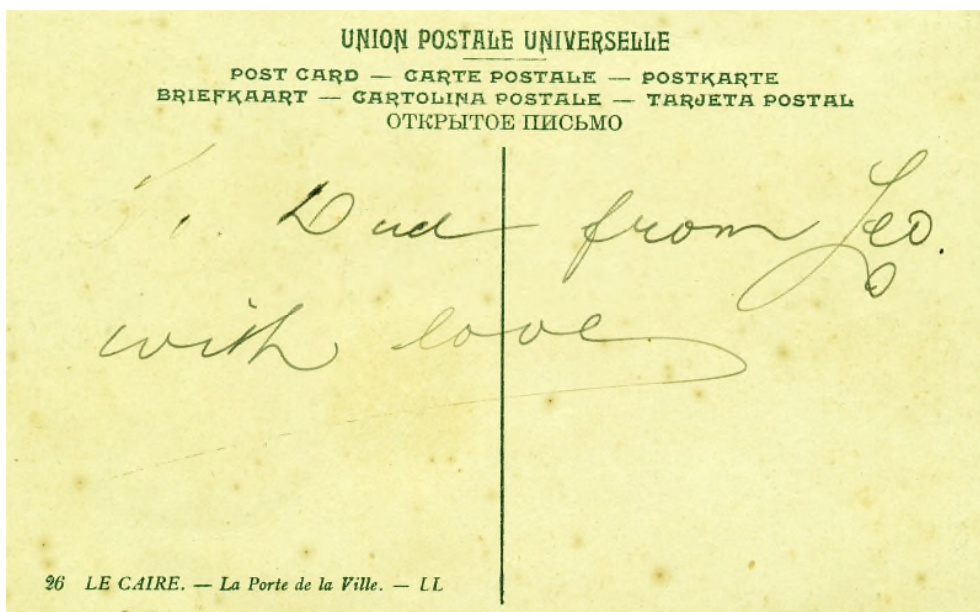 UNION POSTALE UNIVERSELLE
POST CARD — CARTE POSTALE — POSTKARTE
BRIEFKAART — CARTOLINA POSTALE — TARJETA POSTAL
ОТКРЫТОЕ ПИСЬМО
To Dud from Leo.
with love
26 LE CAIRE. — La Porte de la Ville. — LL